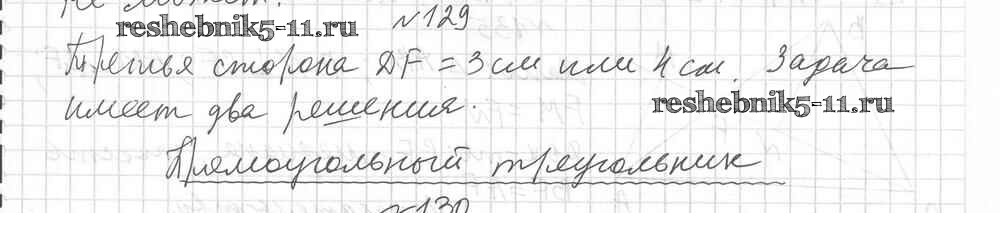 не может.
№129
reshebnik5-11.ru
Третья сторона DF = 3 см или 4 см. Задача
имеет два решения.
reshebnik5-11.ru
Прямоугольный треугольник
№130